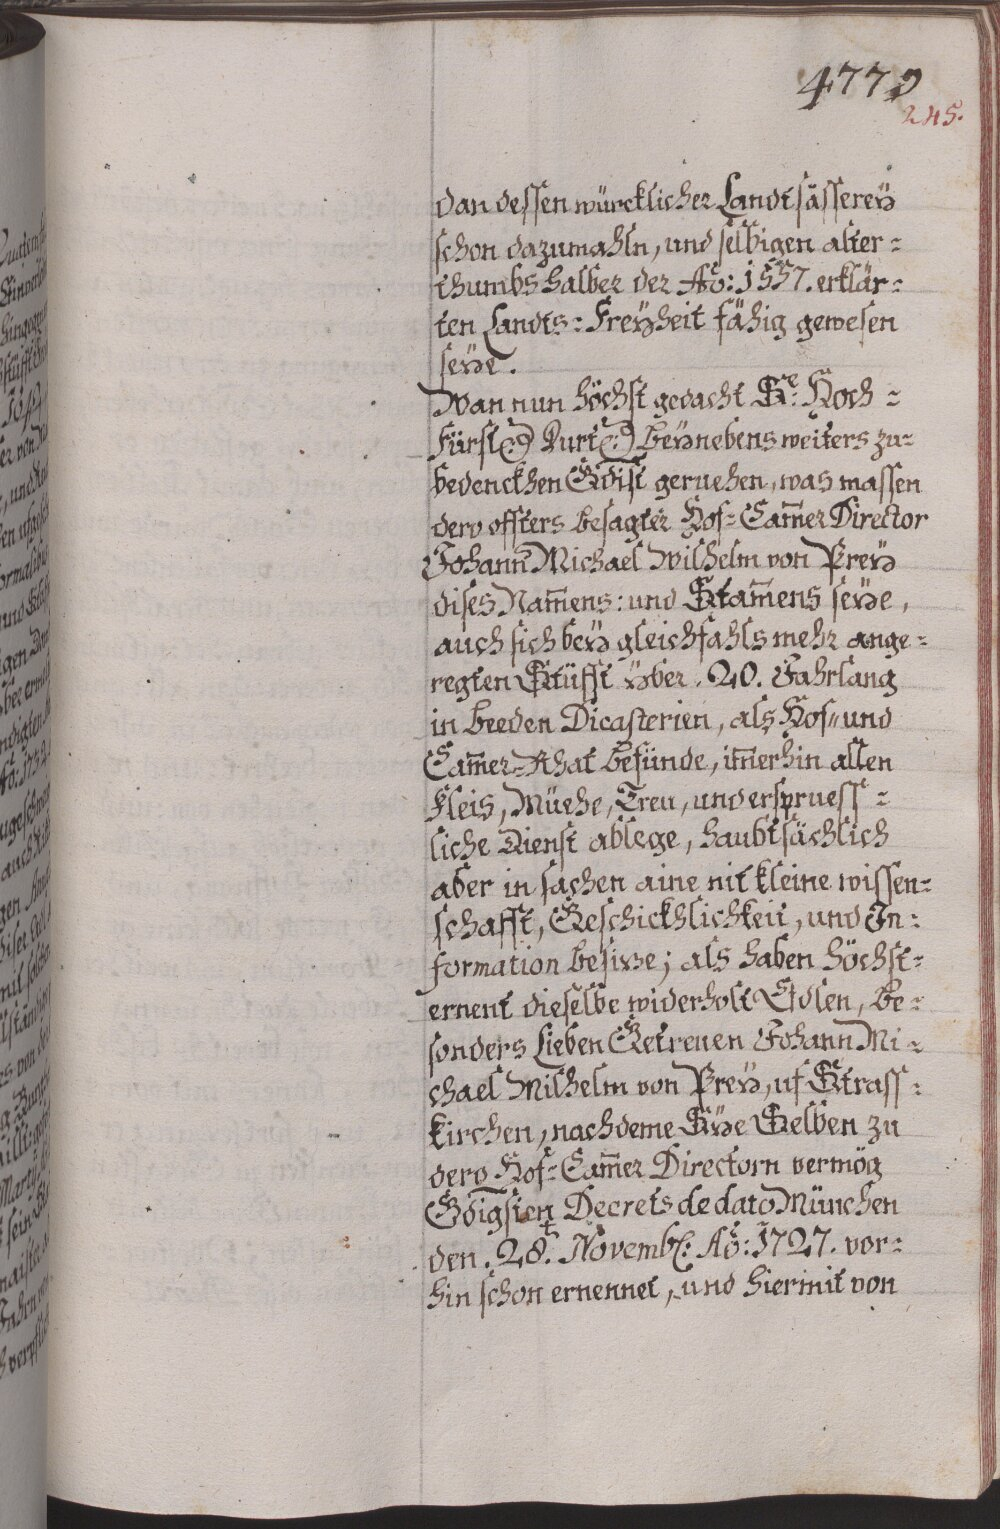 4779
245.
dan dessen würcklicher Landtsässereÿ
schon dazumahln, und selbigen alter=
thumbs halber der Aõ: 1557. erklär=
ten Landts=Freÿheit fähig gewesen
seÿe.
Wan nun höchst gedacht Sr: Hoch=
Fürstl: Durtl: beÿnebens weiters zu=
bedenckhen Gdist geruehen, was massen
dero offters besagter Hof=Cam̃er Director
Johann Michael Wilhelm von Preÿ
dises Nam̃ens: und Stam̃ens seÿe,
auch sich beÿ gleichfahls mehr ange=
regten Stüfft über 20. Jahrlang
in beeden Dicasterien, als Hof= und
Cam̃er=Rhat befünde, im̃erhin allen
Fleis, Müehe, Treu, und erspruess=
liche Dienst ablege, haubtsächlich
aber in sachen aine nit kleine wissen=
schafft, Geschickhlichkeit, und In=
formation besize; als haben höchst=
ernent dieselbe widerholt Edlen, Be=
sonders Lieben Getreuen Johann Mi=
chael Wilhelm von Preÿ, uf Strass=
kirchen, nachdeme Sÿe Selben zu
dero Hof=Cam̃er Directorn vermög
Gdigsten Decrets de dato München
den 28. Novemb: Aõ: 1727. vor=
hin schon ernennet, und hiermit von